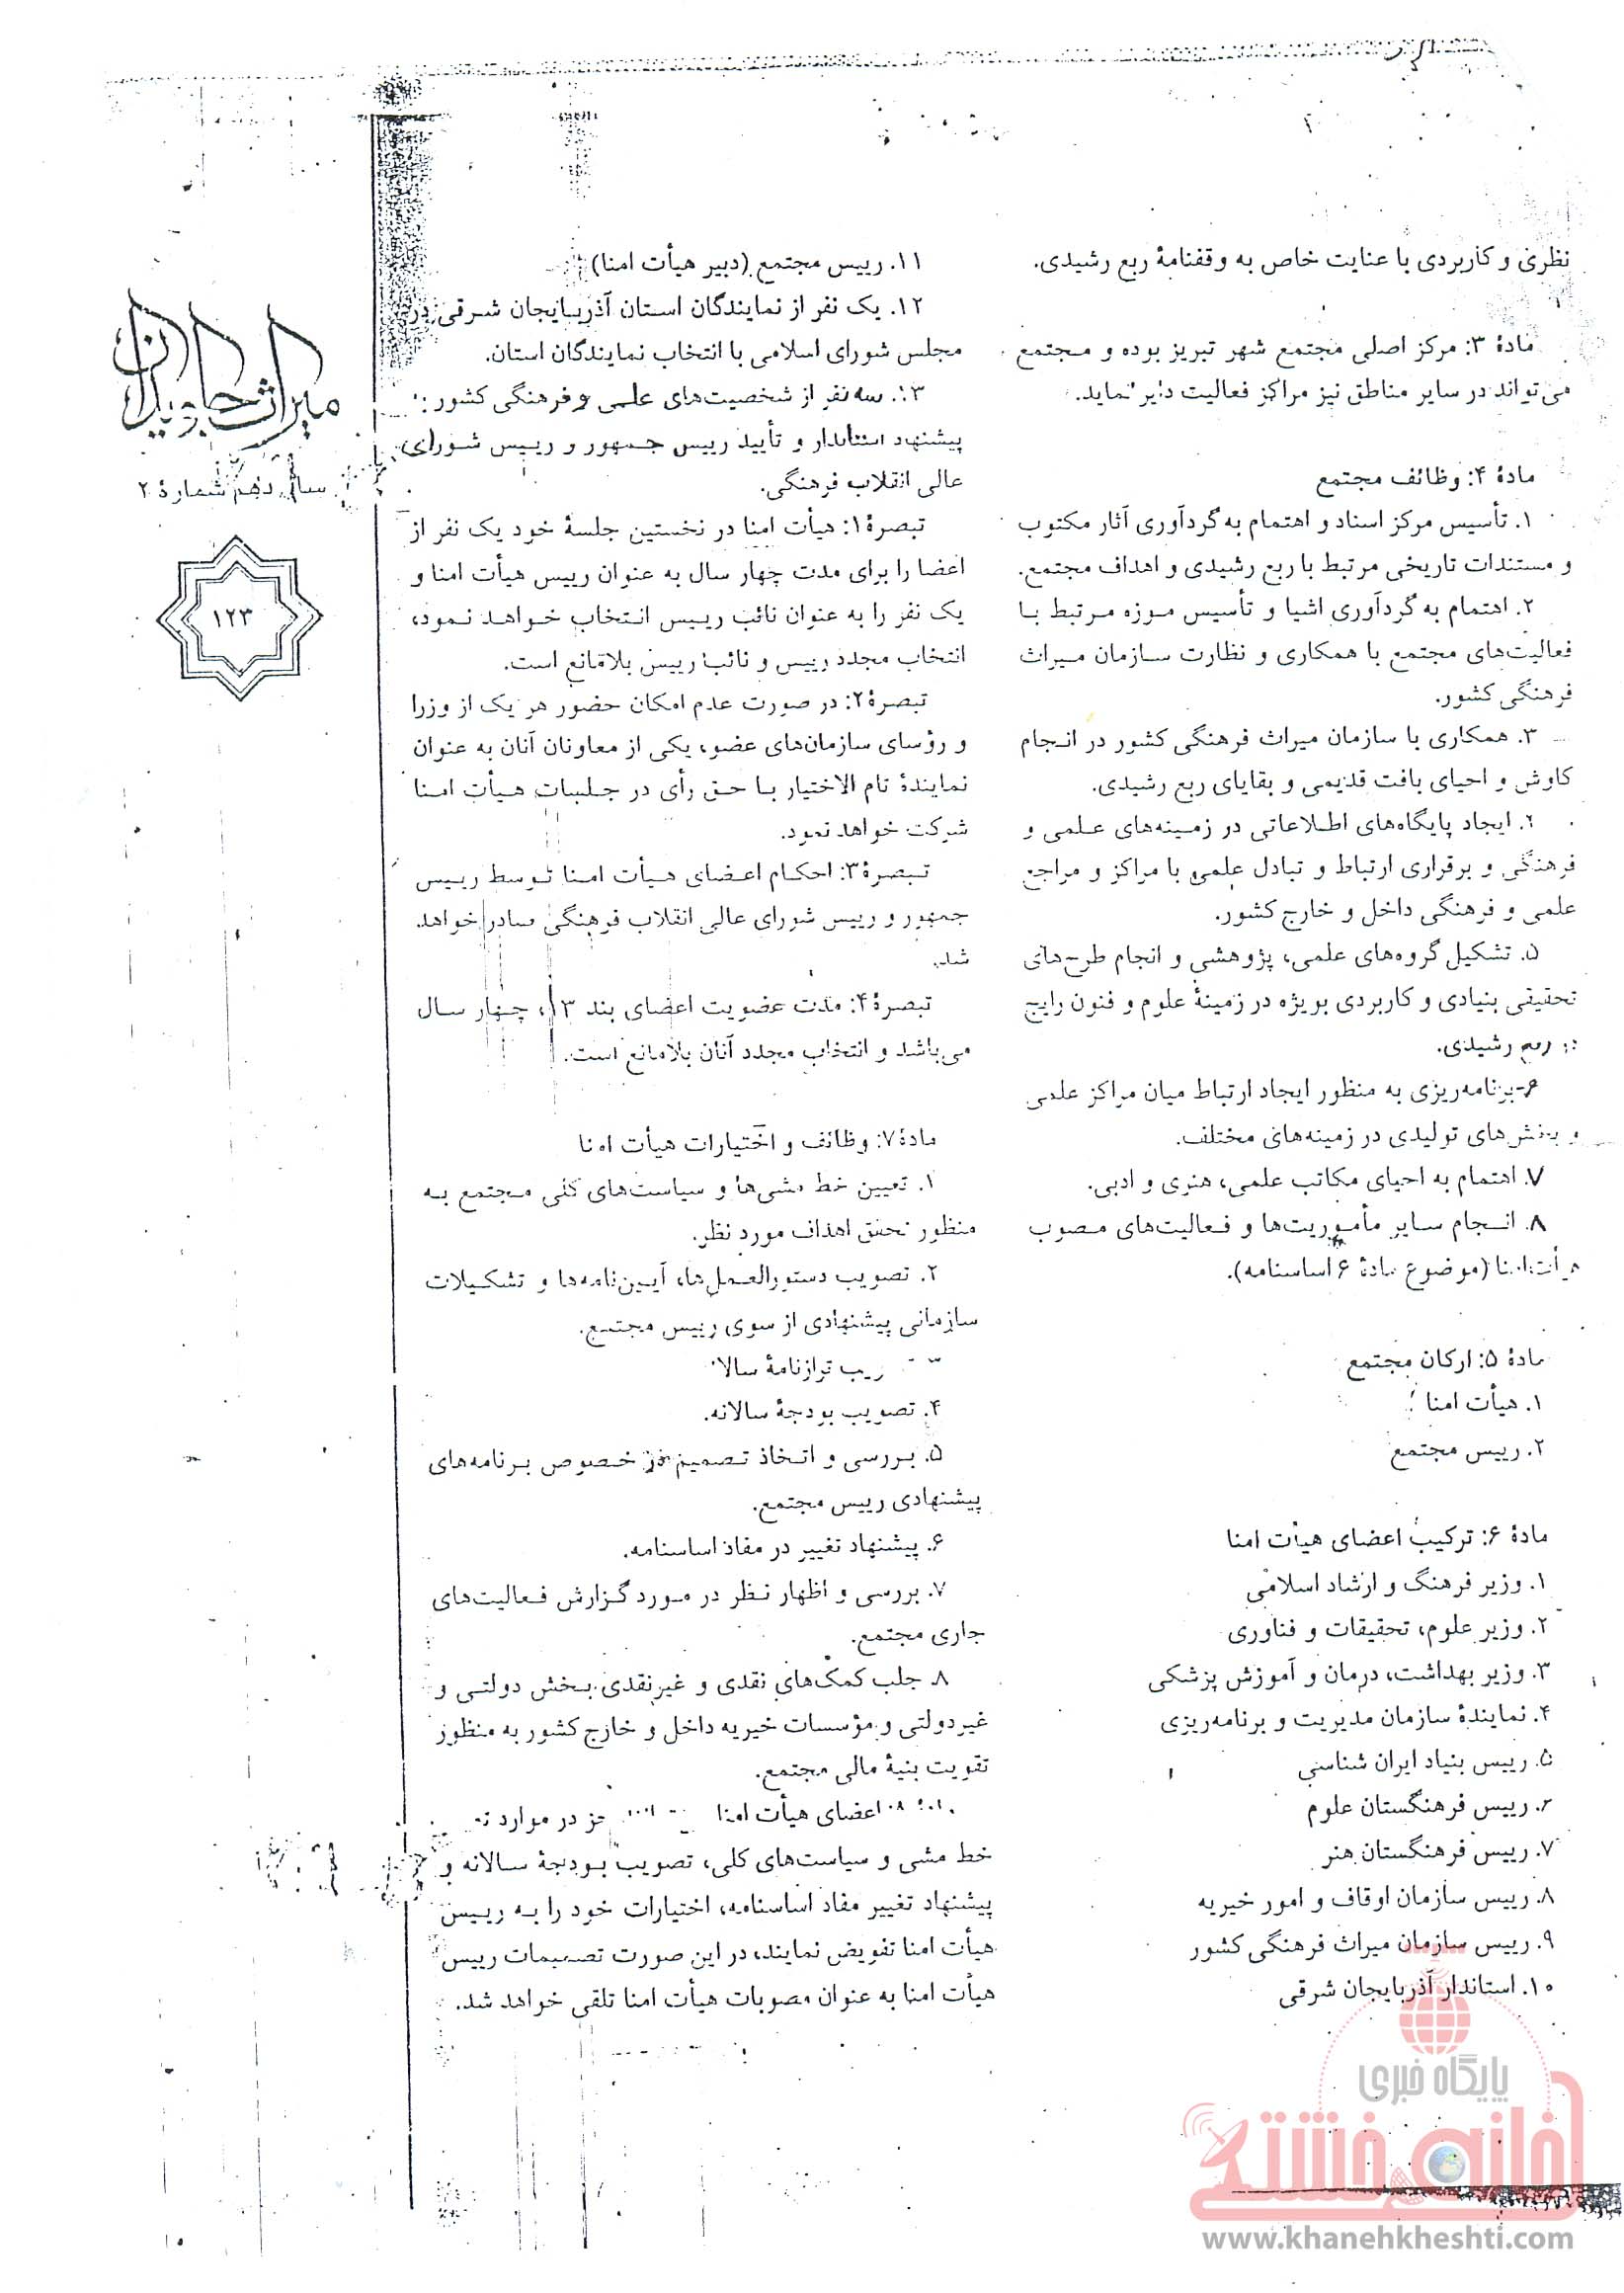 نظری و کاربردی با عنایت خاص به وقفنامهٔ ربع رشیدی.
مادهٔ ۳: مرکز اصلی مجتمع شهر تبریز بوده و مجتمع
می‌تواند در سایر مناطق نیز مراکز فعالیت دایر نماید.
مادهٔ ۴: وظائف مجتمع
۱. تأسیس مرکز اسناد و اهتمام به گردآوری آثار مکتوب
و مستندات تاریخی مرتبط با ربع رشیدی و اهداف مجتمع.
۲. اهتمام به گردآوری اشیا و تأسیس موزه مرتبط با
فعالیت‌های مجتمع با همکاری و نظارت سازمان میراث
فرهنگی کشور.
۳. همکاری با سازمان میراث فرهنگی کشور در انجام
کاوش و احیای بافت قدیمی و بقایای ربع رشیدی.
۴. ایجاد پایگاه‌های اطلاعاتی در زمینه‌های علمی و
فرهنگی و برقراری ارتباط و تبادل علمی با مراکز و مراجع
علمی و فرهنگی داخل و خارج کشور.
۵. تشکیل گروه‌های علمی، پژوهشی و انجام طرح‌های
تحقیقی بنیادی و کاربردی بویژه در زمینهٔ علوم و فنون رایج
در ربع رشیدی.
۶-برنامه‌ریزی به منظور ایجاد ارتباط میان مراکز علمی
و بخش‌های تولیدی در زمینه‌های مختلف.
۷. اهتمام به احیای مکاتب علمی، هنری و ادبی.
۸. انجام سایر مأموریت‌ها و فعالیت‌های مصوب
هیأت امنا (موضوع مادهٔ ۶ اساسنامه).
مادهٔ ۵: ارکان مجتمع
۱. هیأت امنا
۲. رییس مجتمع
مادهٔ ۶: ترکیب اعضای هیأت امنا
۱. وزیر فرهنگ و ارشاد اسلامی
۲. وزیر علوم، تحقیقات و فناوری
۳. وزیر بهداشت، درمان و آموزش پزشکی
۴. نمایندهٔ سازمان مدیریت و برنامه‌ریزی
۵. رییس بنیاد ایران شناسی
۶. رییس فرهنگستان علوم
۷. رییس فرهنگستان هنر
۸. رییس سازمان اوقاف و امور خیریه
۹. رییس سازمان میراث فرهنگی کشور
۱۰. استاندار آذربایجان شرقی
۱۱. رییس مجتمع (دبیر هیأت امنا)
۱۲. یک نفر از نمایندگان استان آذربایجان شرقی در
مجلس شورای اسلامی با انتخاب نمایندگان استان.
۱۳. سه نفر از شخصیت‌های علمی و فرهنگی کشور
پیشنهاد استاندار و تأیید رییس جمهور و رییس شورای
عالی انقلاب فرهنگی.
تبصرهٔ ۱: هیأت امنا در نخستین جلسهٔ خود یک نفر از
اعضا را برای مدت چهار سال به عنوان رییس هیأت امنا و
یک نفر را به عنوان نائب رییس انتخاب خواهد نمود،
انتخاب مجدد رییس و نائب رییس بلامانع است.
تبصرهٔ ۲: در صورت عدم امکان حضور هر یک از وزرا
و رؤسای سازمان‌های عضو، یکی از معاونان آنان به عنوان
نمایندهٔ تام الاختیار با حق رأی در جلسات هیأت امنا
شرکت خواهد نمود.
تبصرهٔ ۳: احکام اعضای هیأت امنا توسط رییس
جمهور و رییس شورای عالی انقلاب فرهنگی صادر خواهد
شد.
تبصرهٔ ۴: مدت عضویت اعضای بند ۱۳، چهار سال
می‌باشد و انتخاب مجدد آنان بلامانع است.
مادهٔ ۷: وظائف و اختیارات هیأت امنا
۱. تعیین خط مشی‌ها و سیاست‌های کلی مجتمع به
منظور تحقق اهداف مورد نظر.
۲. تصویب دستورالعمل‌ها، آیین‌نامه‌ها و تشکیلات
سازمانی پیشنهادی از سوی رییس مجتمع.
ترازنامهٔ
۴. تصویب بودجهٔ سالانه.
۵. بررسی و اتخاذ تصمیم در خصوص برنامه‌های
پیشنهادی رییس مجتمع.
۶. پیشنهاد تغییر در مفاد اساسنامه.
۷. بررسی و اظهار نظر در مورد گزارش فعالیت‌های
جاری مجتمع.
۸. جلب کمک‌های نقدی و غیرنقدی بخش دولتی و
غیردولتی و مؤسسات خیریه داخل و خارج کشور به منظور
تقویت بنیهٔ مالی مجتمع.
اعضای هیأت امنا در موارد
خط مشی و سیاست‌های کلی، تصویب بودجهٔ سالانه و
پیشنهاد تغییر مفاد اساسنامه، اختیارات خود را به رییس
هیأت امنا تفویض نمایند، در این صورت تصمیمات رییس
هیأت امنا به عنوان مصوبات هیأت امنا تلقی خواهد شد.
میراث جاویدان
سال دهم شمارهٔ ۲
۱۲۳
پایگاه خبری
خانه خشتی
www.khanehkheshti.com